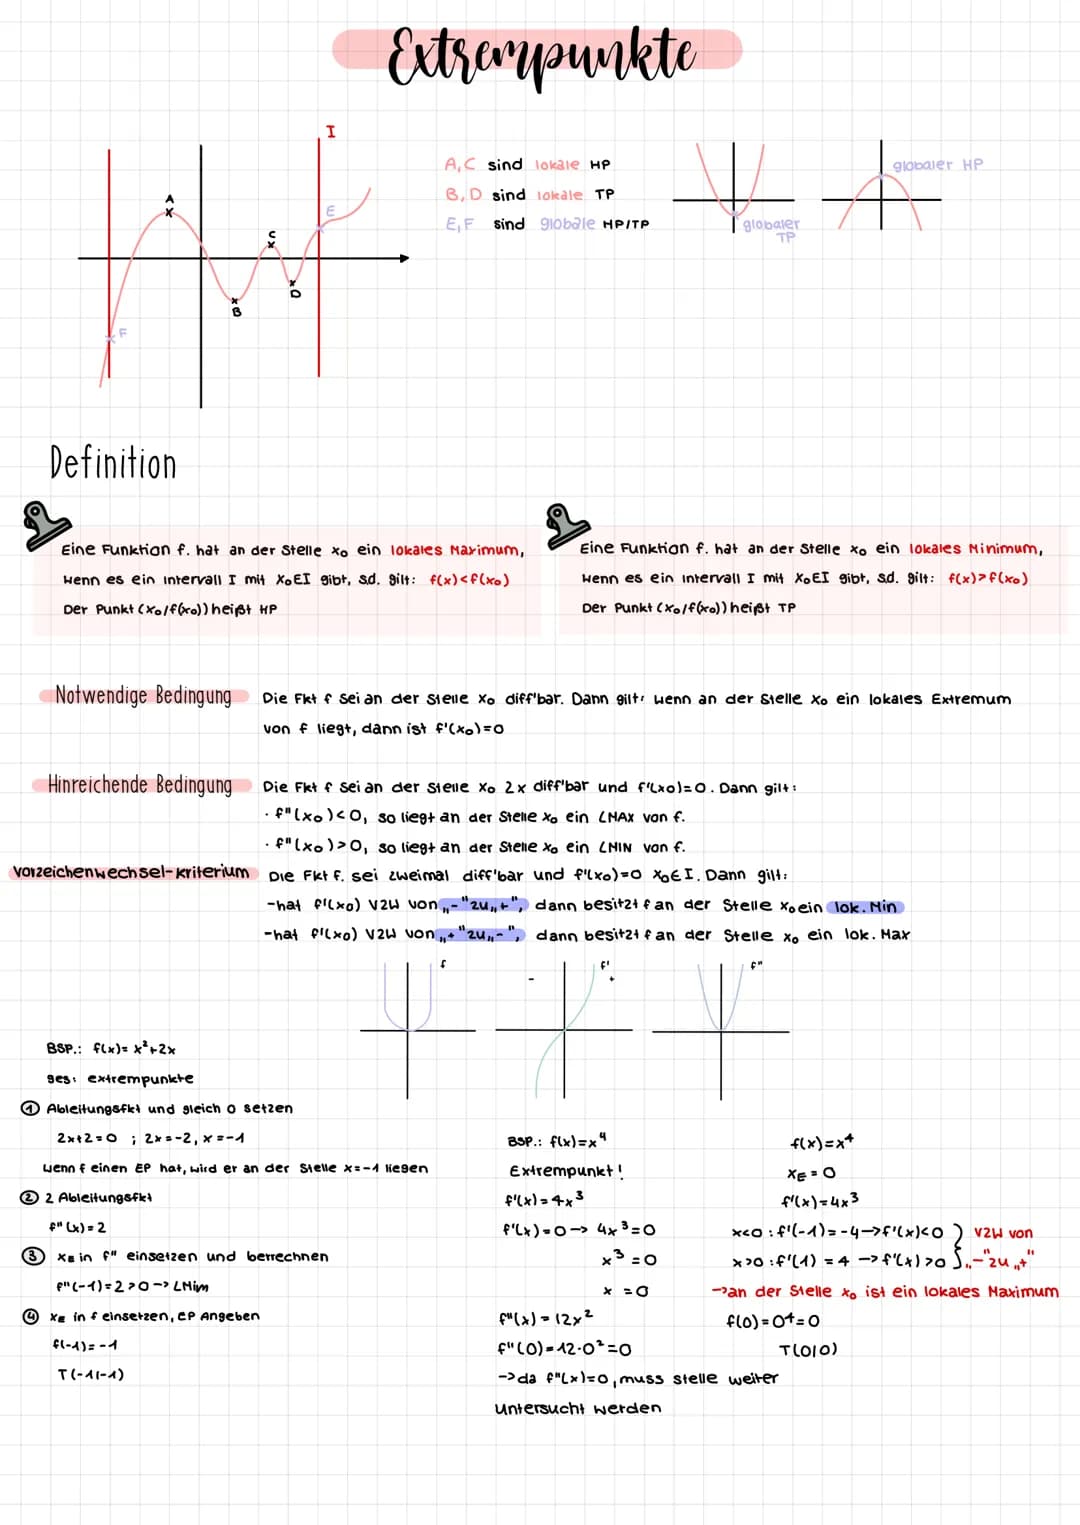 Extrempunkte
I
A
E
C
D
B
F
A, C sind lokale HP
B, D sind lokale TP
E, F sind globale HP/TP
globaler
TP
globaler HP
Definition
Eine Funktion f. hat an der Stelle x₀ ein lokales Maximum,
wenn es ein intervall I mit X₀EI gibt, s.d. gilt: f(x)<f(x₀)
Der Punkt (x₀/f(x₀)) heißt HP
Eine Funktion f. hat an der Stelle x₀ ein lokales Minimum,
wenn es ein intervall I mit X₀EI gibt, s.d. gilt: f(x)>f(x₀)
Der Punkt (x₀/f(x₀)) heißt TP
Notwendige Bedingung Die Fkt f sei an der Stelle x₀ diff'bar. Dann gilt: wenn an der Stelle x₀ ein lokales Extremum
von f liegt, dann ist f'(x₀)=0
Hinreichende Bedingung Die Fkt f sei an der Stelle x₀ 2x diff'bar und f'(x₀)=0. Dann gilt:
· f"(x₀)<0, so liegt an der Stelle x₀ ein LMAX von f.
· f"(x₀)>0, so liegt an der Stelle x₀ ein LMIN von f.
Vorzeichenwechsel-kriterium Die Fkt f. sei zweimal diff'bar und f'(x₀)=0 x₀∈I. Dann gilt:
-hat f'(x₀) VZW von „-" zu „+", dann besitzt f an der Stelle x₀ ein lok. Min
-hat f'(x₀) VZW von „+" zu „-", dann besitzt f an der Stelle x₀ ein lok. Max
f
-
f'
+
f"
BSP.: f(x)= x²+2x
ges: extrempunkte
① Ableitungsfkt und gleich 0 setzen
2x+2=0 ; 2x=-2, x=-1
wenn f einen EP hat, wird er an der Stelle x=-1 liegen
② 2 Ableitungsfkt
f"(x)=2
③ xᴇ in f" einsetzen und berrechnen
f"(-1)=2>0 -> LMim
④ xᴇ in f einsetzen, EP Angeben
f(-1)=-1
T(-1|-1)
BSP.: f(x)=x⁴
Extrempunkt!
f'(x)=4x³
f'(x)=0-> 4x³=0
x³=0
x=0
f"(x)=12x²
f"(0)=12·0²=0
->da f"(x)=0, muss stelle weiter
untersucht werden
f(x)=x⁴
xᴇ=0
f'(x)=4x³
x<0: f'(-1)=-4->f'(x)<0
x>0: f'(1)=4 ->f'(x)>0
} VZW von
„-" zu „+"
->an der Stelle x₀ ist ein lokales Maximum
f(0)=0⁴=0
T(0|0)